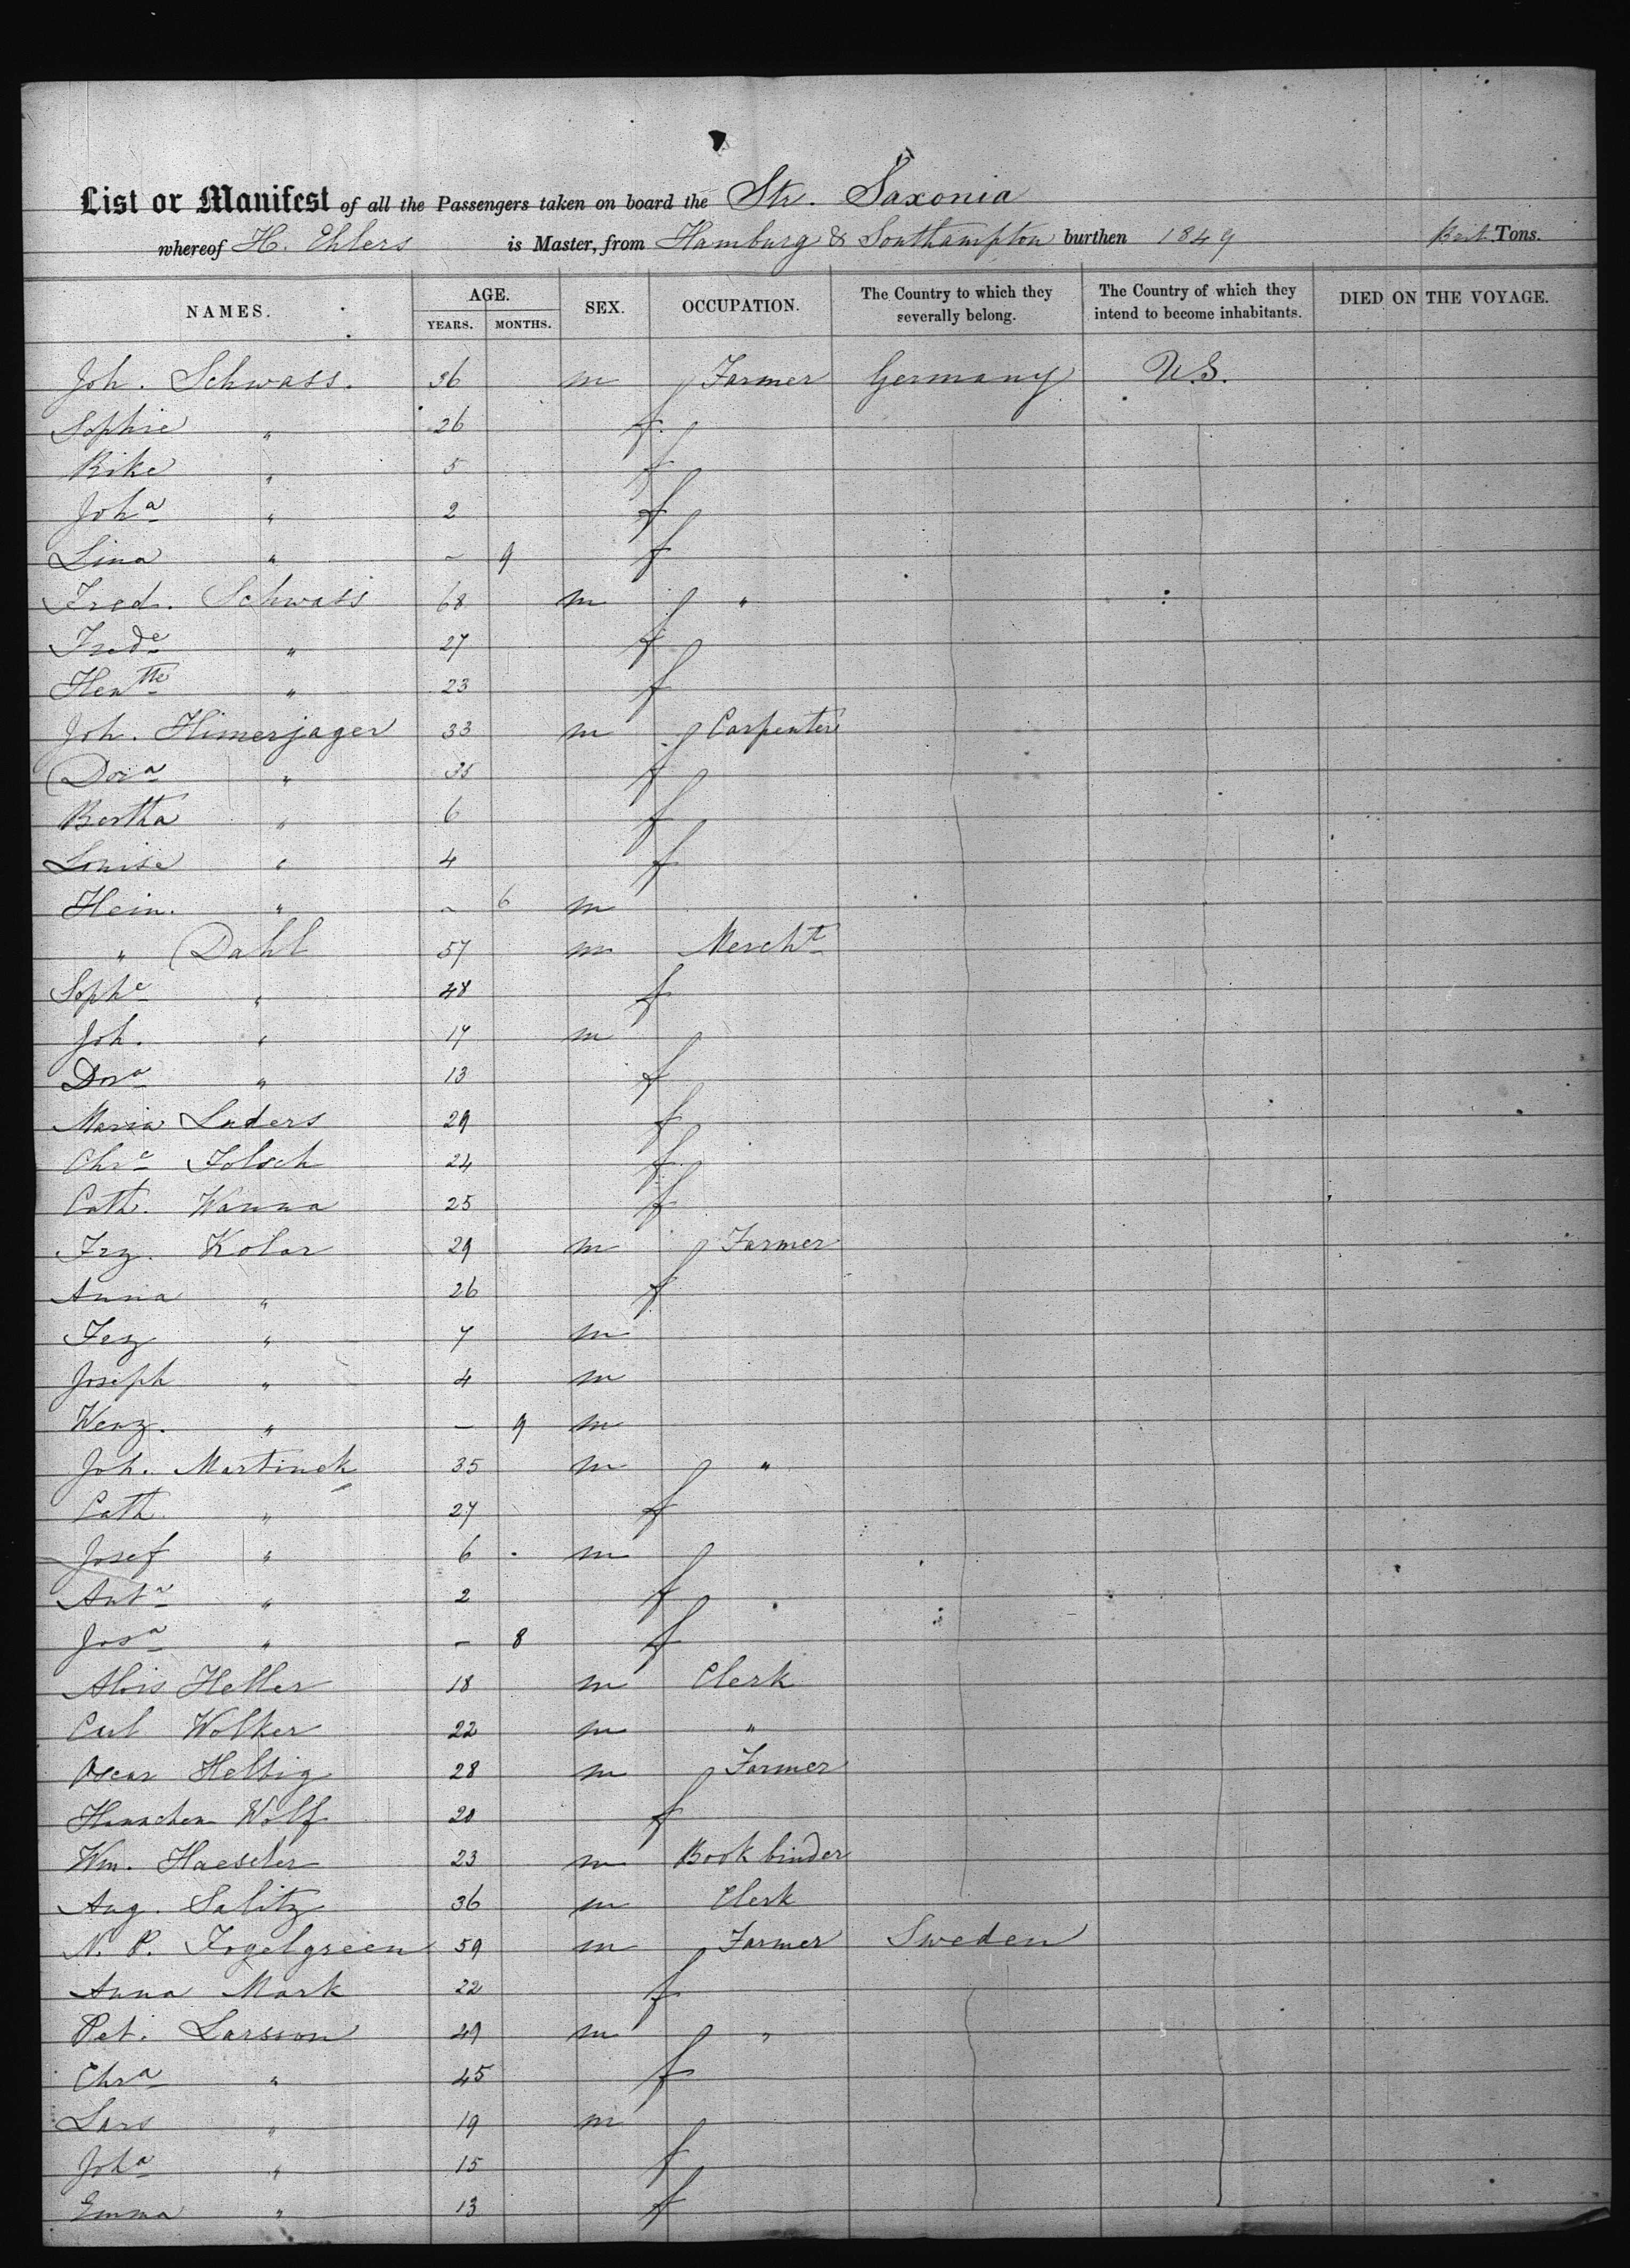 List or Manifest of all the Passengers taken on board the Str. Saxonia
whereof H. Ehlers is Master, from Hamburg & Southampton burthen 1849 Tons.
NAMES. AGE. YEARS. MONTHS. SEX. OCCUPATION. The Country to which they severally belong. The Country of which they intend to become inhabitants. DIED ON THE VOYAGE.
Joh. Schwass. 36 m Farmer Germany U.S.
Sophie " 26 f
Rike " 5 f
Joha " 2 f
Lina " - 9 f
Fred. Schwass 68 m "
Frede " 27 f
Hentte " 23 f
Joh. Himerjager 33 m Carpenter
Dora " 35 f
Bertha " 6 f
Louise " 4 f
Hein. " - 6 m
" Dahl 57 m Mercht
Sophe " 48 f
Joh. " 17 m
Dora " 13 f
Maria Luders 29 f
Chre Folsch 24 f
Cath. Wanna 25 f
Frz. Kolar 29 m Farmer
Anna " 26 f
Frz " 7 m
Joseph " 4 m
Wenz. " - 9 m
Joh. Martinek 35 m "
Cath. " 27 f
Josef " 6 m
Anta " 2 f
Josa " - 8 f
Alois Heller 18 m Clerk
Carl Wolker 22 m "
Oscar Helbig 28 m Farmer
Hannchen Wolf 20 f
Wm. Haeseler 23 m Bookbinder
Aug. Salitz 36 m Clerk
N. P. Fogelgreen 59 m Farmer Sweden
Anna Mark 22 f
Pet. Larsson 49 m "
Chra " 45 f
Lars " 19 m
Joha " 15 f
Emma " 13 f